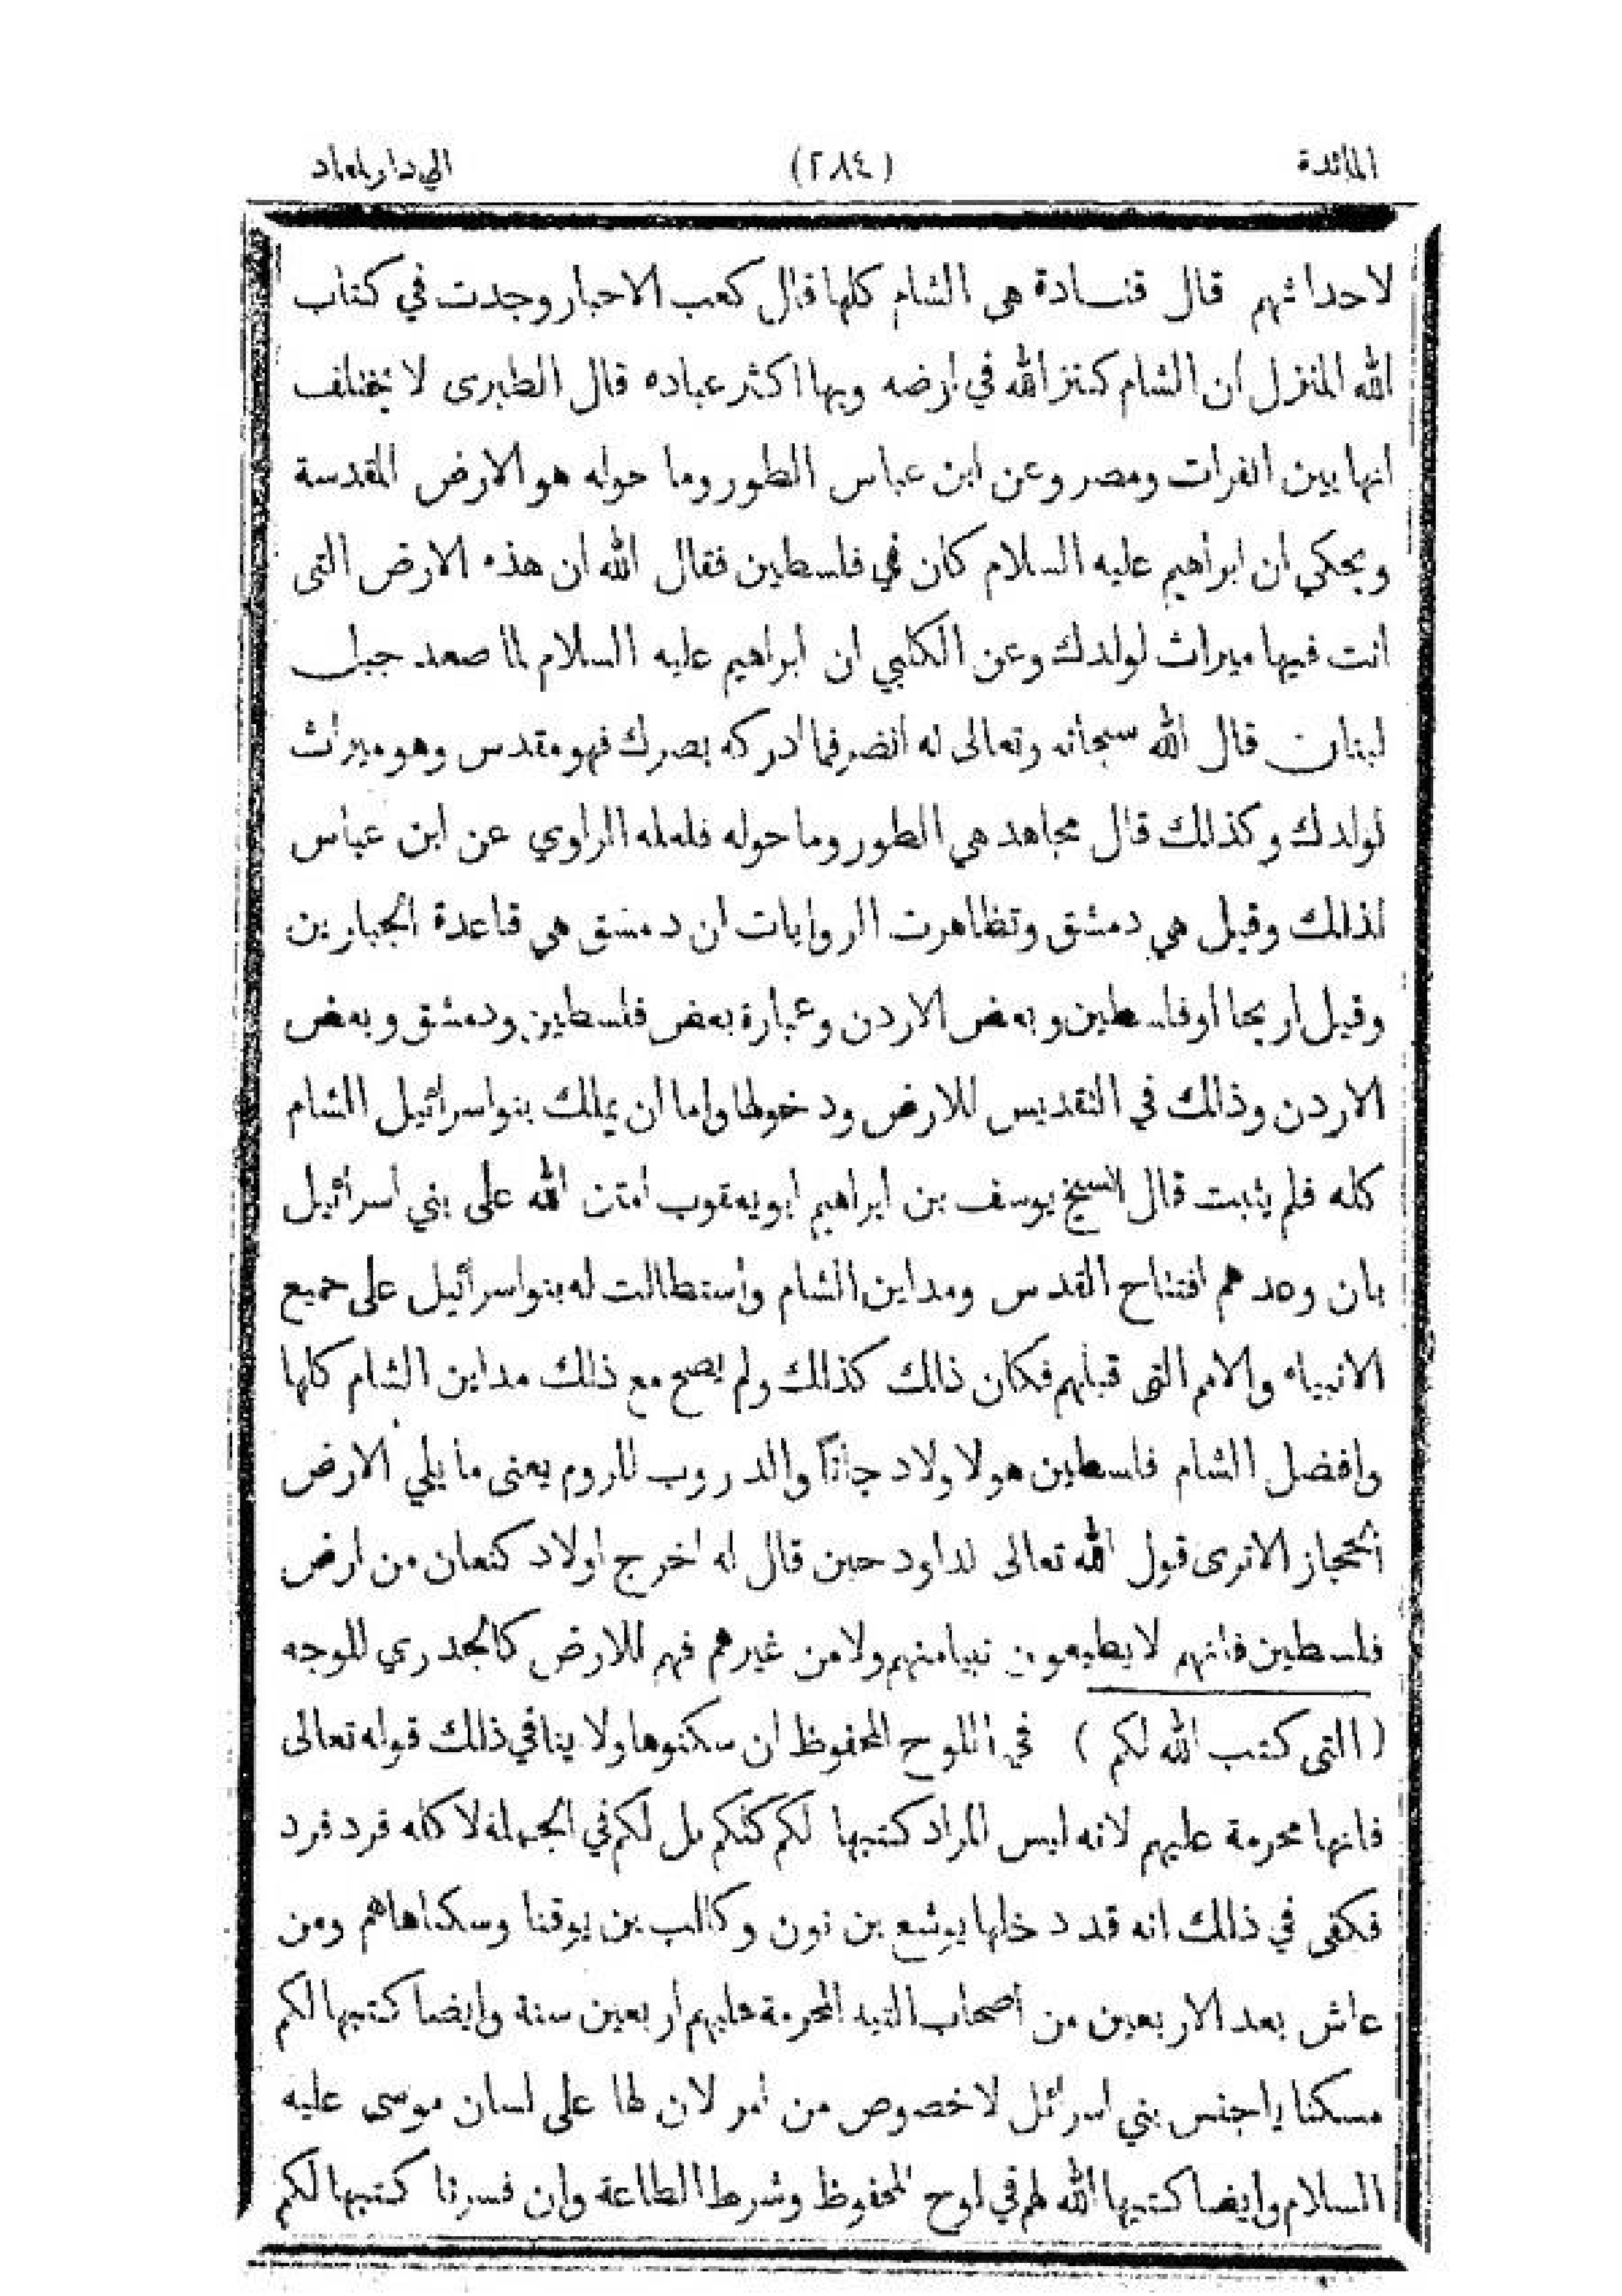 المائدة (٢٨٤) الى دار المعاد
لاحداثهم قال قتادة هى الشام كلها قال كعب الاحبار وجدت في كتاب
الله المنزل ان الشام كنز الله في ارضه وبها اكثر عباده قال الطبرى لا يختلف
انها بين الفرات ومصر وعن ابن عباس الطور وما حوله هو الارض المقدسة
ويحكى ان ابراهيم عليه السلام كان في فلسطين فقال الله ان هذه الارض التى
انت فيها ميراث لولدك وعن الكلبي ان ابراهيم عليه السلام لما صعد جبل
لبنان قال الله سبحانه وتعالى له انضر فما ادركه بصرك فهو مقدس وهو ميراث
لولدك وكذلك قال مجاهد هي الطور وما حوله فلعله الراوي عن ابن عباس
لذلك وقيل هي دمشق وتظاهرت الروايات ان دمشق هي قاعدة الجبارين
وقيل اريحا او فلسطين وبعض الاردن وعبارة بعض فلسطين ودمشق وبعض
الاردن وذلك في التقديس للارض ودخولها واما ان يملك بنو اسرائيل الشام
كله فلم يثبت قال الشيخ يوسف بن ابراهيم ابو يعقوب امتن الله على بني اسرائيل
بان وعدهم افتتاح القدس ومداين الشام واستطالت له بنو اسرائيل على جميع
الانبياء والامم التى قبلهم فكان ذلك كذلك ولم يصح مع ذلك مداين الشام كلها
وافضل الشام فلسطين هو لاولاد جانا والدروب للروم يعنى ما يلي الارض
الحجاز الا ترى قول الله تعالى لداود حين قال له اخرج اولاد كنعان من ارض
فلسطين فانهم لا يطيعون نبيا منهم ولا من غيرهم فهم للارض كالجدري للوجه
(التى كتب الله لكم) في اللوح المحفوظ ان سكنوها ولا ينافي ذلك قوله تعالى
فانها محرمة عليهم لانه ليس المراد كتبها لكم كلكم بل لكم في الجملة لا كله فرد فرد
فكفى في ذلك انه قد دخلها يوشع بن نون وكالب بن يوقنا وسكناها هم ومن
عاش بعد الاربعين من اصحاب التيه المحرمة عليهم اربعين سنة وايضا كتبها لكم
مسكنا يا جنس بني اسرائل لا خصوص من امر لان لها على لسان موسى عليه
السلام وايضا كتبها الله لهم في لوح المحفوظ وشرط الطاعة وان فسرنا كتبها لكم